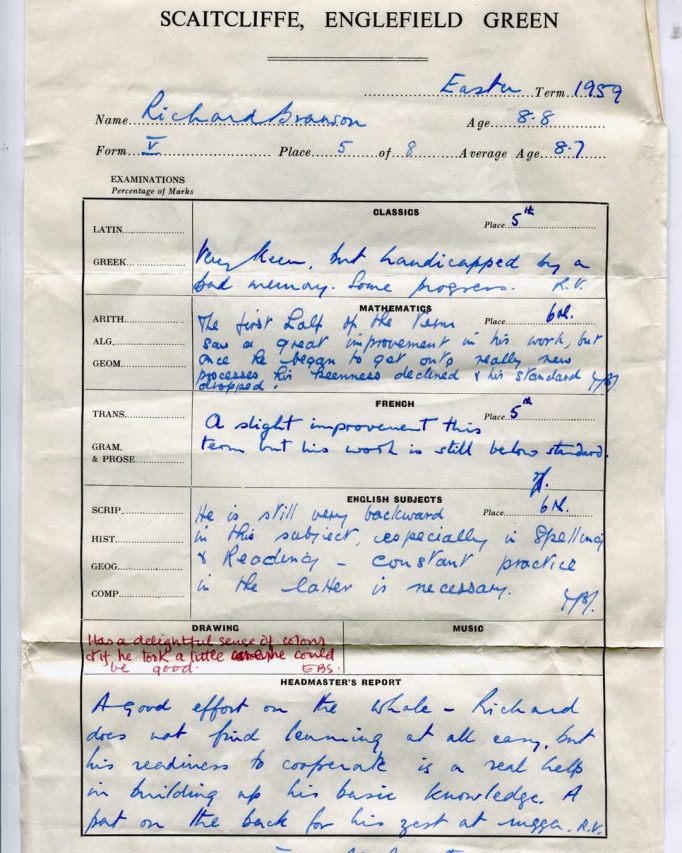 SCAITCLIFFE, ENGLEFIELD GREEN
Easter Term 1959
Name Richard Branson Age 8·8
Form V Place 5 of 8 Average Age 8·7
EXAMINATIONS
Percentage of Marks
CLASSICS
LATIN
Place 5th
GREEK
Very keen, but handicapped by a
bad memory. Some progress. R.V.
MATHEMATICS
ARITH
The first half of the term Place 6th.
ALG.
saw a great improvement in his work, but
GEOM
once he began to get onto really new
processes his keenness declined & his standard
dropped.
FRENCH
TRANS.
Place 5th
A slight improvement this
GRAM.
& PROSE
term but his work is still below standard.
ENGLISH SUBJECTS
SCRIP.
He is still very backward Place 6th.
HIST.
in this subject, especially in Spelling
GEOG
& Reading – constant practice
COMP
in the latter is necessary.
DRAWING
MUSIC
Has a delightful sense of colour
& if he took a little care he could
be good. EBS.
HEADMASTER'S REPORT
A good effort on the whole – Richard
does not find learning at all easy, but
his readiness to cooperate is a real help
in building up his basic knowledge. A
pat on the back for his zest at rugger. R.V.